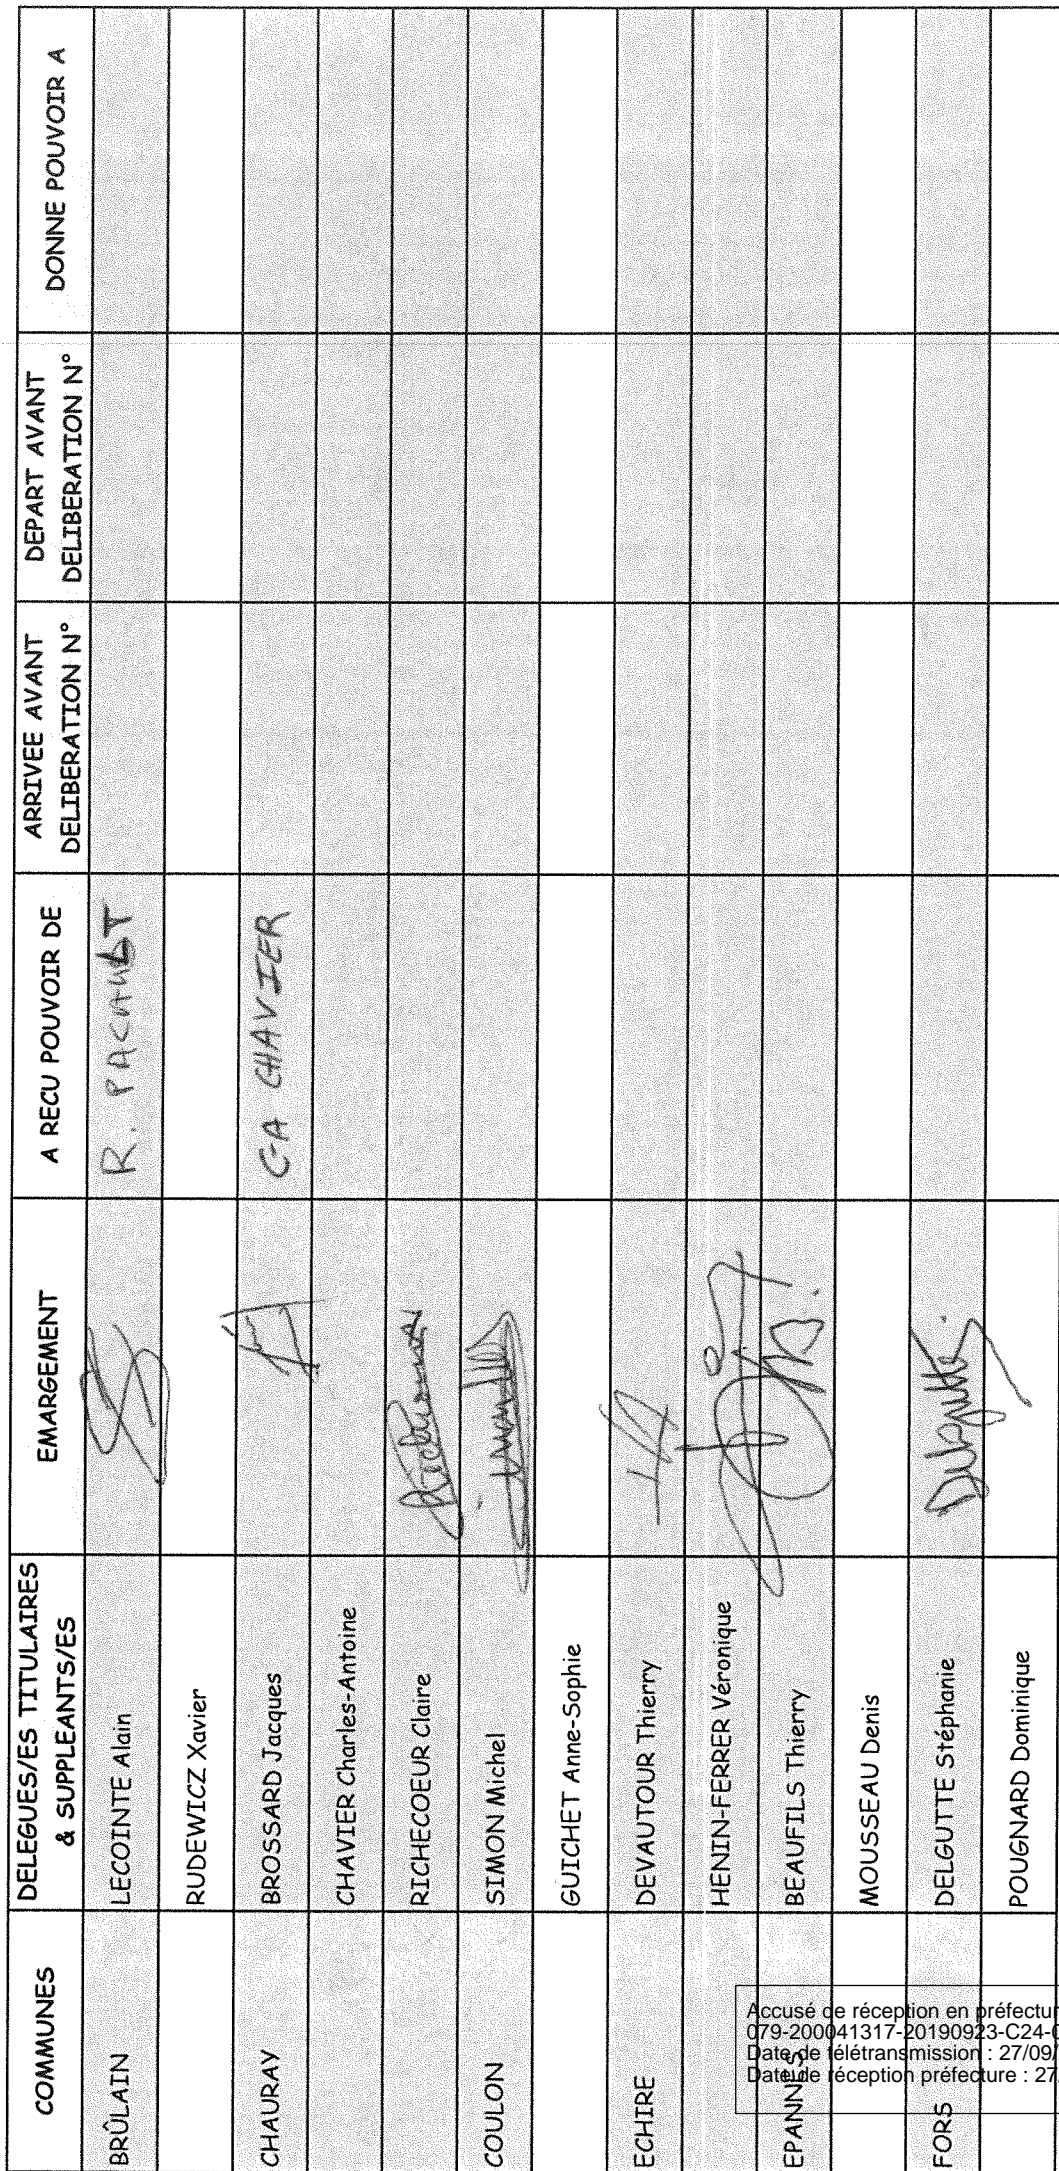 COMMUNES
DELEGUES/ES TITULAIRES
& SUPPLEANTS/ES
EMARGEMENT
A RECU POUVOIR DE
ARRIVEE AVANT
DELIBERATION N°
DEPART AVANT
DELIBERATION N°
DONNE POUVOIR A
BRÛLAIN
LECOINTE Alain
R. PACAULT
RUDEWICZ Xavier
CHAURAY
BROSSARD Jacques
C-A CHAVIER
CHAVIER Charles-Antoine
RICHECOEUR Claire
COULON
SIMON Michel
GUICHET Anne-Sophie
ECHIRE
DEVAUTOUR Thierry
HENIN-FERRER Véronique
EPANNES
BEAUFILS Thierry
MOUSSEAU Denis
FORS
DELGUTTE Stéphanie
Delgutte
POUGNARD Dominique
Accusé de réception en préfectur
079-200041317-20190923-C24-0
Date de télétransmission : 27/09/
Date de réception préfecture : 27